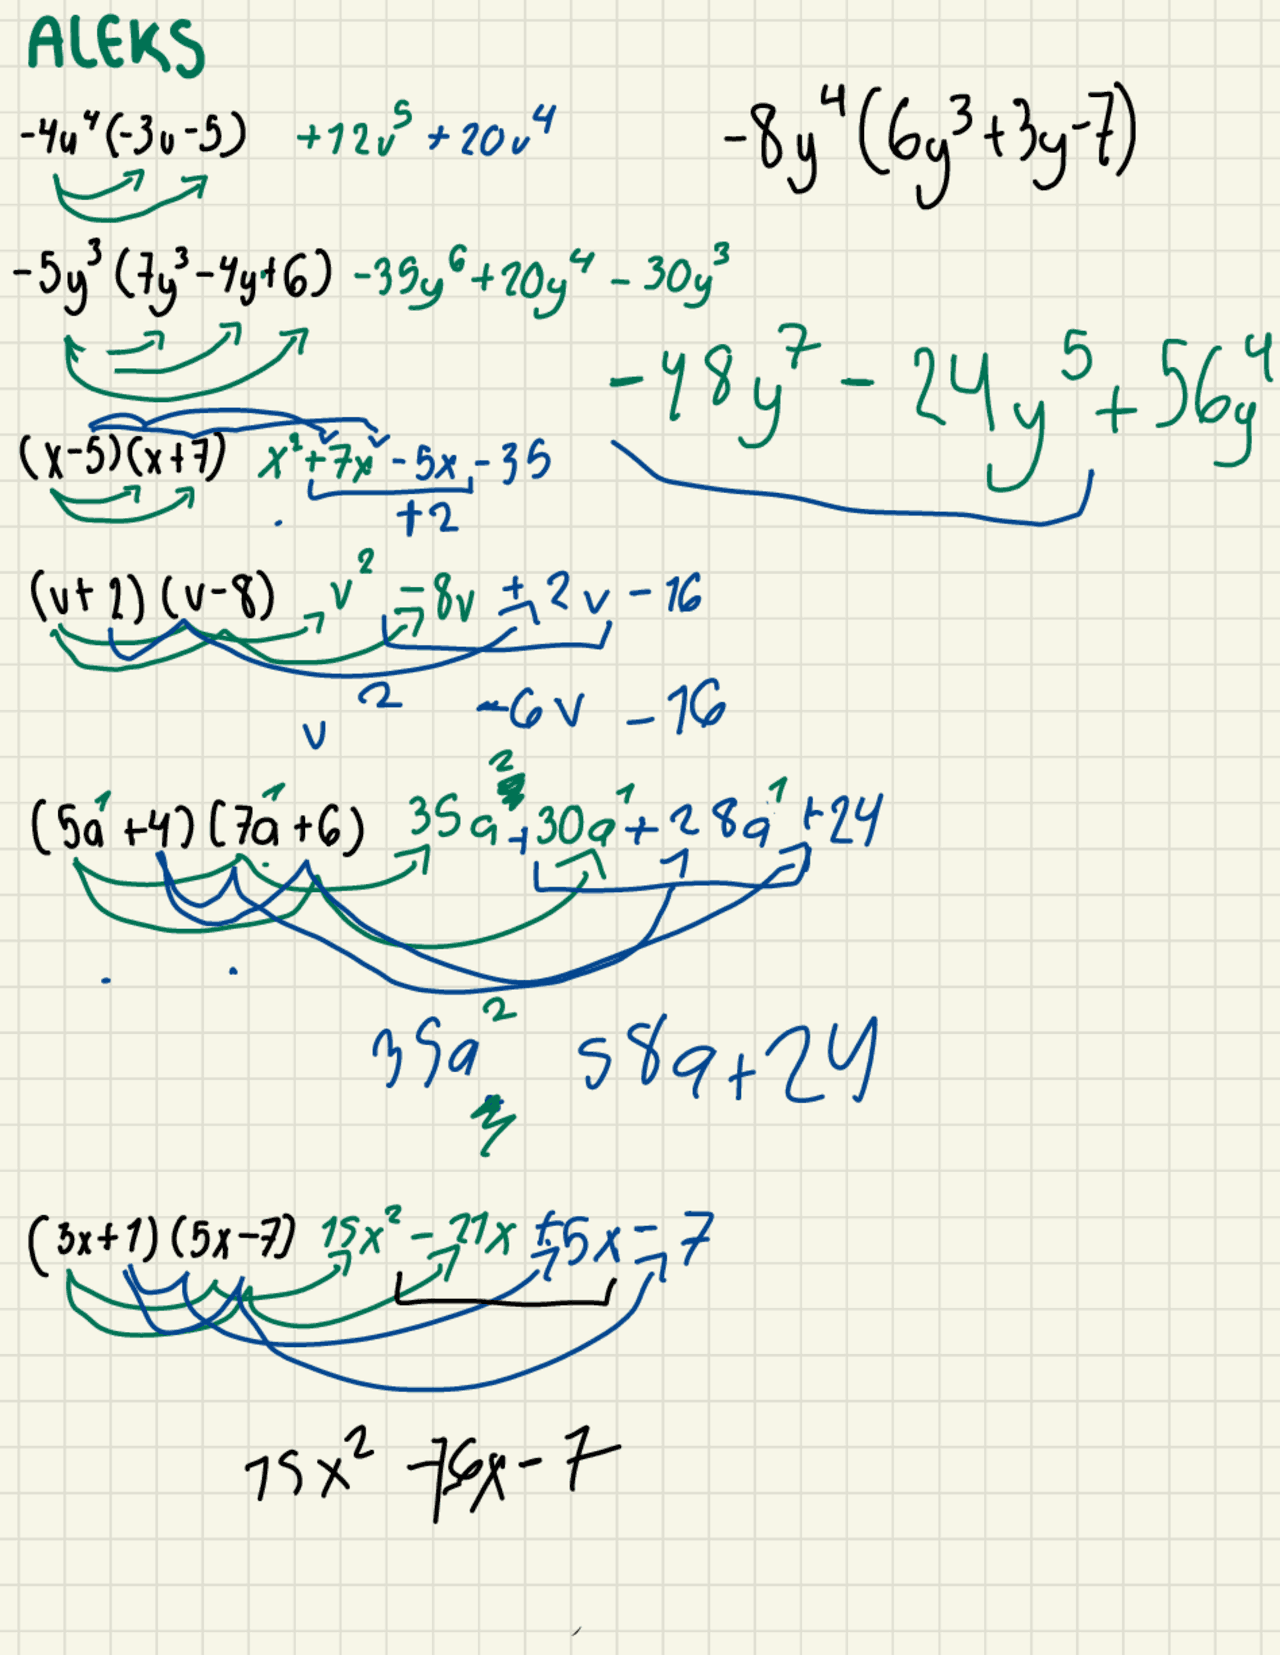 ALEKS
-4u⁴(-3u-5) +12v⁵ +20v⁴
-8y⁴(6y³+3y-7)
-5y³(7y³-4y+6) -35y⁶+20y⁴-30y³
-48y⁷-24y⁵+56y⁴
(x-5)(x+7) x²+7x-5x-35
+2
(v+2)(v-8) v²-8v+2v-16
v² -6v -16
(5a¹+4)(7a¹+6) 35a²+30a¹+28a¹+24
35a² 58a+24
(3x+1)(5x-7) 15x²-21x+5x-7
15x² -16x-7